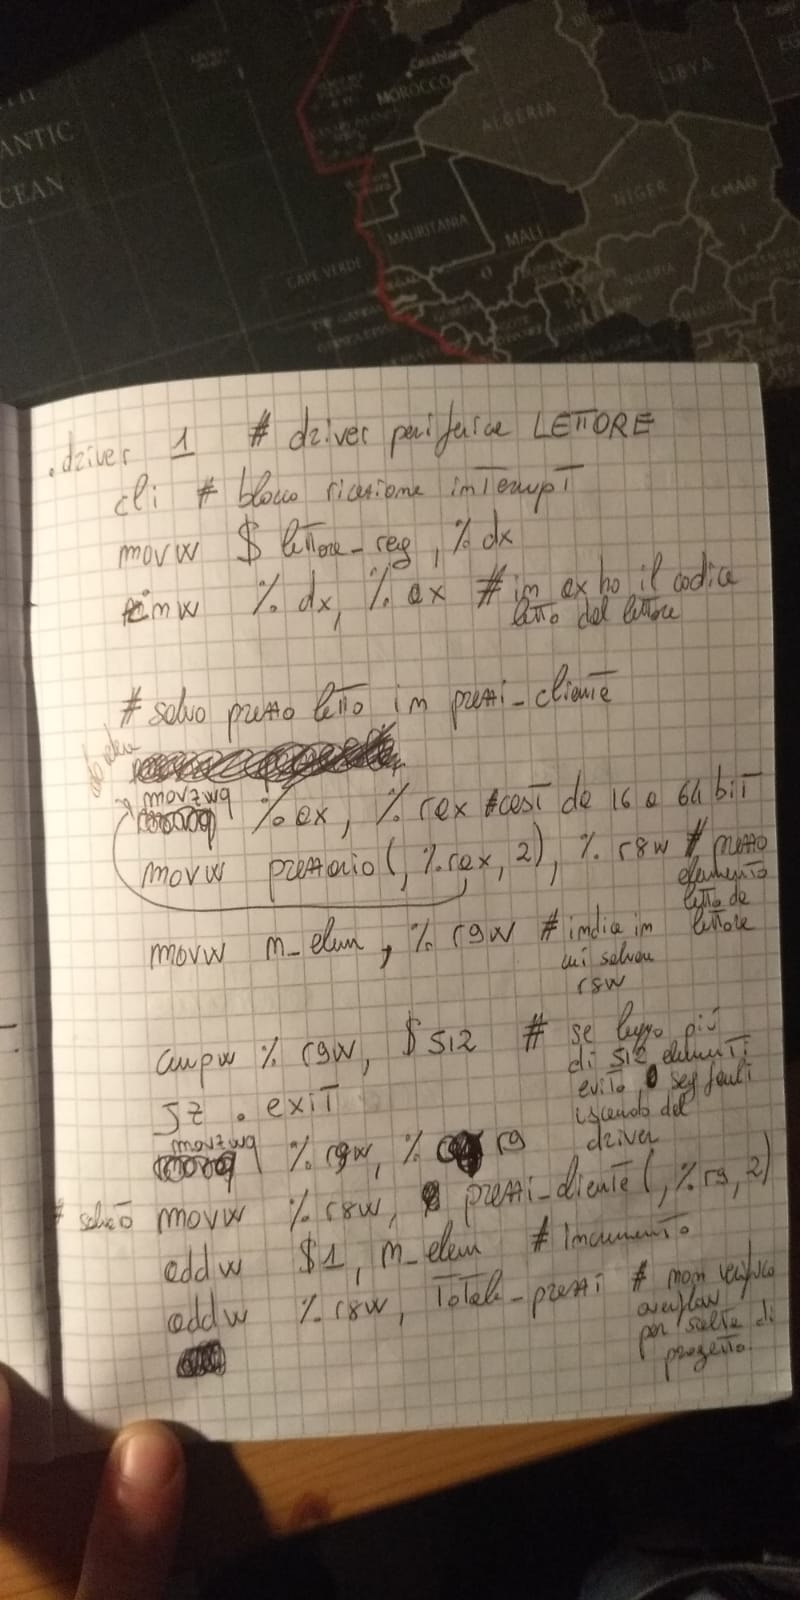 ANTIC
CEAN
Casablanca
MOROCCO
ALGERIA
LIBYA
EG
MAURITANIA
MALI
NIGER
CHAD
CAPE VERDE
NIGERIA
.driver 1 # driver periferica LETTORE
cli # blocco ricezione interrupt
movw $ lettore_reg, % dx
inw % dx, % ax # in ax ho il codice
letto dal lettore
# salvo prezzo letto in prezzi_cliente
movzwq % ax, % rax # cast da 16 a 64 bit
movw prezzario(, % rax, 2), % r8w # prezzo
elemento
letto da
lettore
movw n_elem, % r9w # indice in
cui salvare
r8w
cmpw % r9w, $ 512 # se leggo più
di 512 elementi
evito seg fault
uscendo dal
driver
jz .exit
movzwq % r9w, % r9
# salvo movw % r8w, prezzi_cliente(, % r9, 2)
addw $1, n_elem # incremento
addw % r8w, Totale_prezzi # non verifico
overflow
per scelta di
progetto.